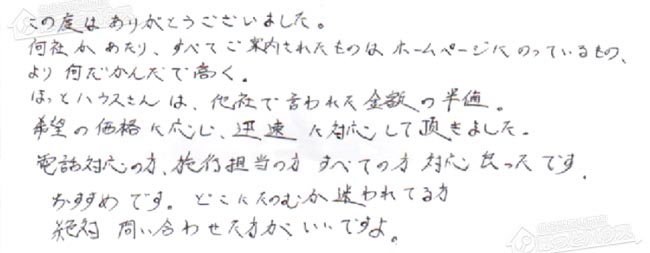 この度はありがとうございました。
何社かあたり、すべてご案内されたものはホームページにのっているもの、
より何だかんだで高く。
ほっとハウスさんは、他社で言われた金額の半値。
希望の価格に応じ、迅速に対応して頂きました。
電話対応の方、施行担当の方すべての方対応良ったです.
おすすめです。どこにたのむか迷われてる方
絶対問い合わせた方がいいですよ。